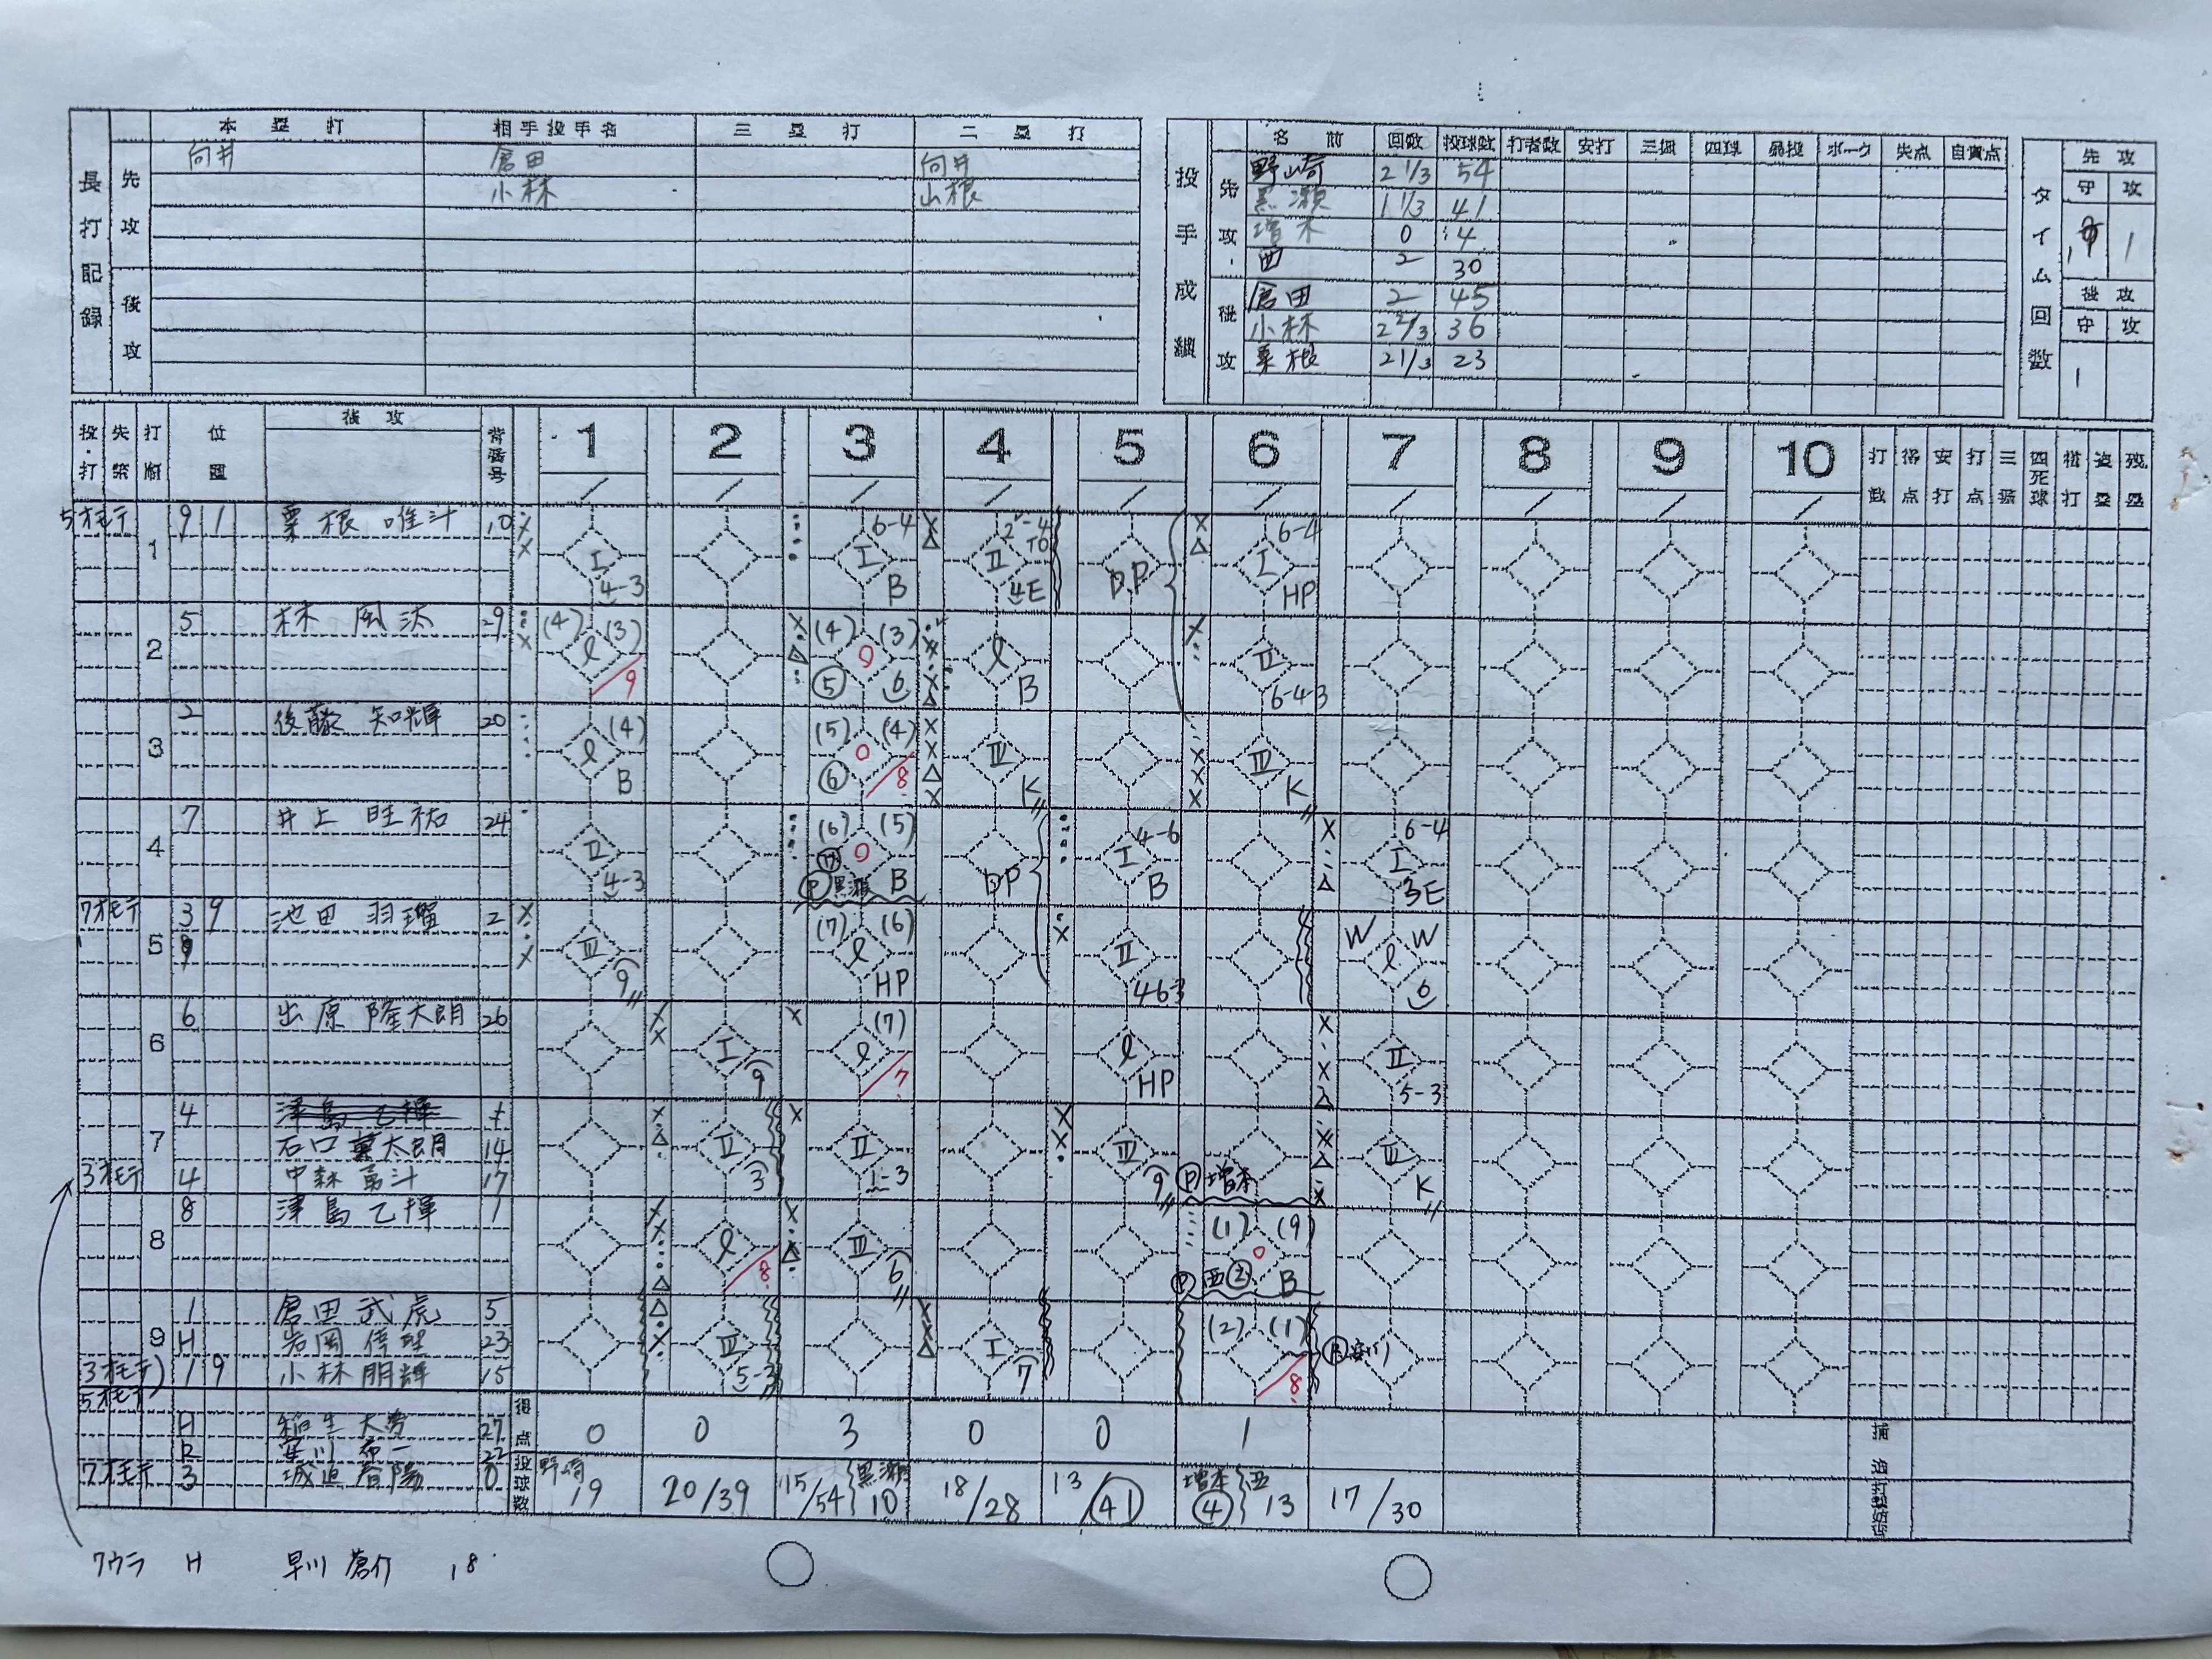 長打記録
先攻
後攻
本塁打 相手投手名 三塁打 二塁打
向井 倉田 向井
小林 山根
投手成績
先攻
後攻
名前 回数 投球数 打者数 安打 三振 四球 暴投 ボーク 失点 自責点
野崎 2 1/3 54
黒瀬 1 1/3 41
増本 0 4
西 2 30
倉田 2 45
小林 2 2/3 36
栗根 2 1/3 23
タイム回数
先攻
守 攻
1 1
後攻
守 攻
1
投・打 打順 位置 後攻 背番号 1 2 3 4 5 6 7 8 9 10 打数 得点 安打 打点 三振 四死球 犠打 盗塁 残塁
5オモテ 1 9 1 栗根 唯斗 10 I 4-3 I 6-4 B II 4E D.P. I 6-4 HP
2 5 林 風汰 29 (4) (3) l 9 (4) (3) ○ ⑤ 6 l B II 6-4-3
3 2 後藤 知輝 20 l (4) B (5) (4) ○ ⑥ 8 III K III K
4 7 井上 旺祐 24 II 4-3 (6) (5) ○ P 黒瀬 B DP I 4-6 B I 6-4 3E
7オモテ 5 3 9 池田 羽瑠 2 III 9 (7) (6) l HP II 463 W W l 6
6 6 出原 隆太朗 26 I 9 (7) l 7 l HP II 5-3
7 4 津島 乙揮 1 II 3 II 1-3 III 9 P 増本 III K
石口 菫太朗 14
3オモテ 4 中森 勇斗 17
8 8 津島 乙揮 1 l 8 III 6 (1) (9) ○ P 西 ② B
9 1 倉田 武虎 5 III 5-3 I 7 (2) (1) 8
H 岩岡 23
3オモテ 1 9 小林 朋輝 15
5オモテ
H 稲生 27
R 22
7オモテ 3 城迫 春陽 0
得点 0 0 3 0 0 1
投球数 野崎 19 20/39 15/54 黒瀬 10 18/28 13/41 増本 4 西 13 17/30
7ウラ H 早川 蒼介 18